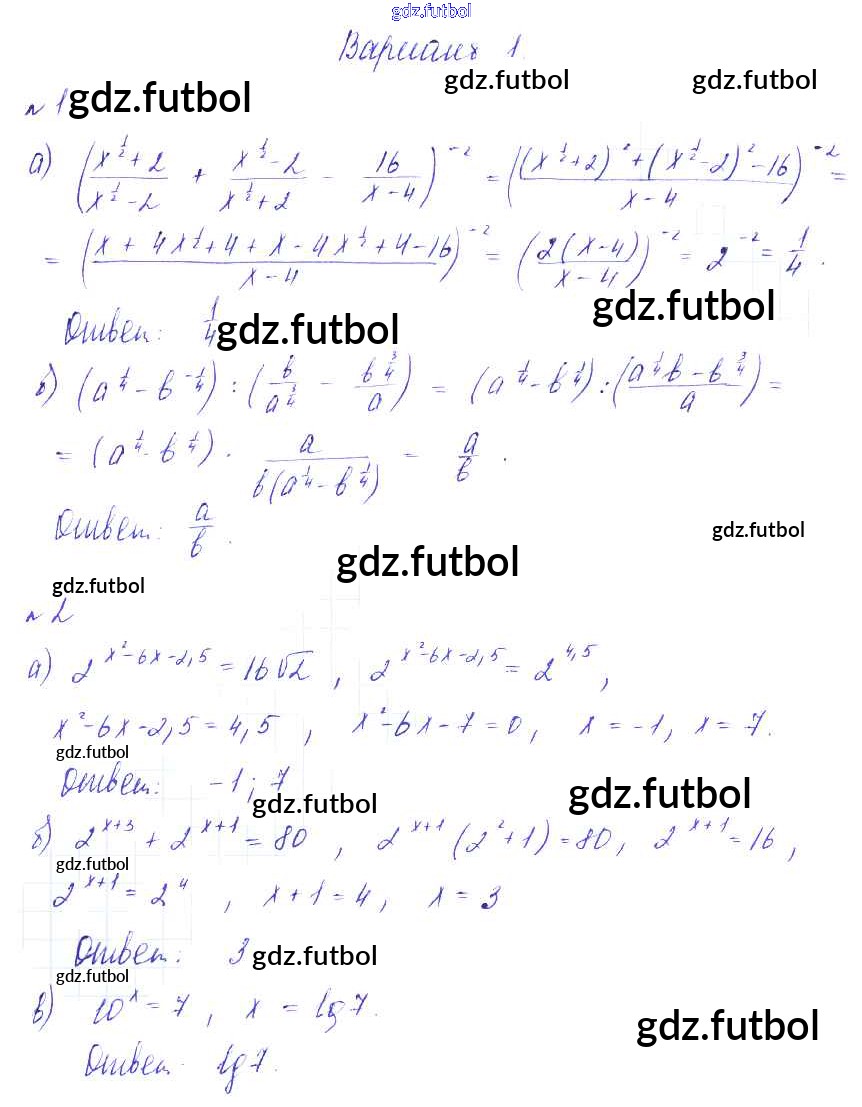 gdz.futbol
Вариант 1.
gdz.futbol gdz.futbol
№ 1 gdz.futbol
а) ((x^{1/2}+2)/(x^{1/2}-2) + (x^{1/2}-2)/(x^{1/2}+2) - 16/(x-4))^{-2} = (((x^{1/2}+2)^2+(x^{1/2}-2)^2-16)/(x-4))^{-2} =
= ((x + 4x^{1/2}+4+x-4x^{1/2}+4-16)/(x-4))^{-2} = (2(x-4)/(x-4))^{-2} = 2^{-2} = 1/4.
gdz.futbol
Ответ: 1/4 gdz.futbol
б) (a^{1/4} - b^{-1/4}) : (b/a^{3/4} - b^{3/4}/a) = (a^{1/4}-b^{1/4}) : ((a^{1/4}b-b^{3/4})/a) =
= (a^{1/4}-b^{1/4}) · a/(b(a^{1/4}-b^{1/4})) = a/b.
Ответ: a/b.
gdz.futbol
gdz.futbol
gdz.futbol
№ 2
а) 2^{x^2-6x-2,5} = 16√2, 2^{x^2-6x-2,5} = 2^{4,5},
x^2-6x-2,5=4,5, x^2-6x-7=0, x=-1, x=7.
gdz.futbol
Ответ: -1; 7
gdz.futbol gdz.futbol
б) 2^{x+3} + 2^{x+1} = 80, 2^{x+1}(2^2+1)=80, 2^{x+1}=16,
gdz.futbol
2^{x+1} = 2^4, x+1=4, x=3
Ответ: 3 gdz.futbol
gdz.futbol
в) 10^x = 7, x = lg 7.
gdz.futbol
Ответ: lg 7.